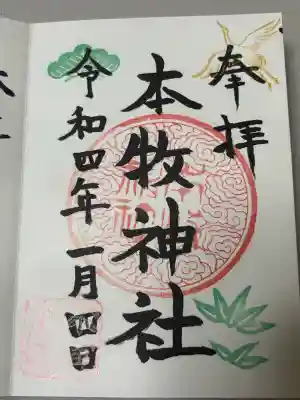 奉拝
本牧神社
令和四年一月四日